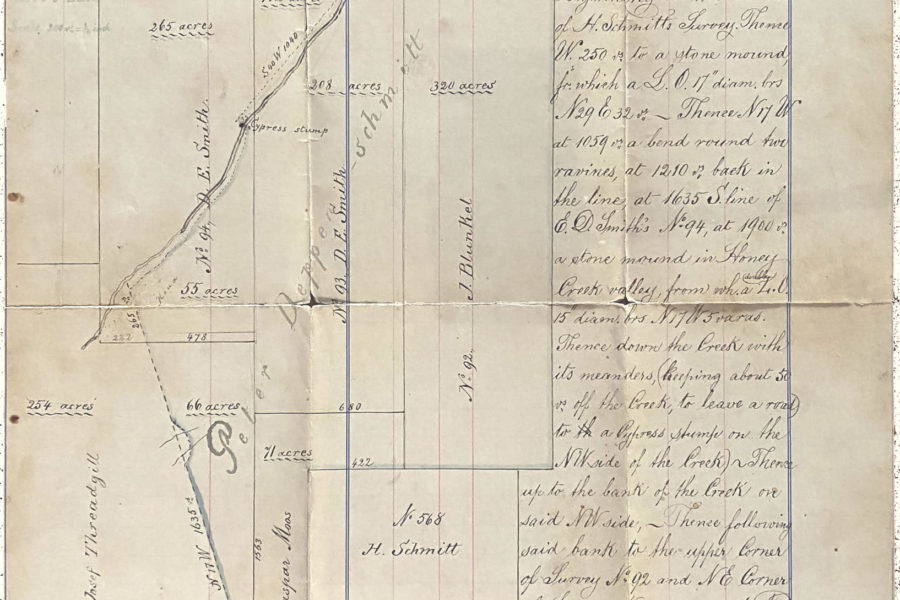 265 acres
S40W 1040
208 acres
320 acres
Cypress stump
Nº 94, D. E. Smith.
Nº 93 D. E. Smith
Schmitt
Deppe
Peter
J. Blunkel
Nº 92.
55 acres
265
222
478
254 acres
66 acres
680
71 acres
422
N17W 1635
1563
Josef Threadgill
Caspar Moos
Nº 568
H. Schmitt
of H. Schmitt's Survey. Thence
W. 250 vs to a stone mound,
fr. which a L. O. 17" diam. brs
N29 E 32 vs – Thence N17 W
at 1059 vs a bend round two
ravines, at 1210 vs back in
the line, at 1635 S. line of
E. D. Smith's Nº 94, at 1900 vs
a stone mound in Honey
Creek valley, from wh. a L. O.
15 diam. brs N17 W 5 varas.
Thence down the Creek with
its meanders, (keeping about 50
vs off the Creek, to leave a road)
to a Cypress stump on the
NW side of the Creek) ~ Thence
up to the bank of the Creek on
said NW side, – Thence following
said bank to the upper Corner
of Survey Nº 92 and NE Corner